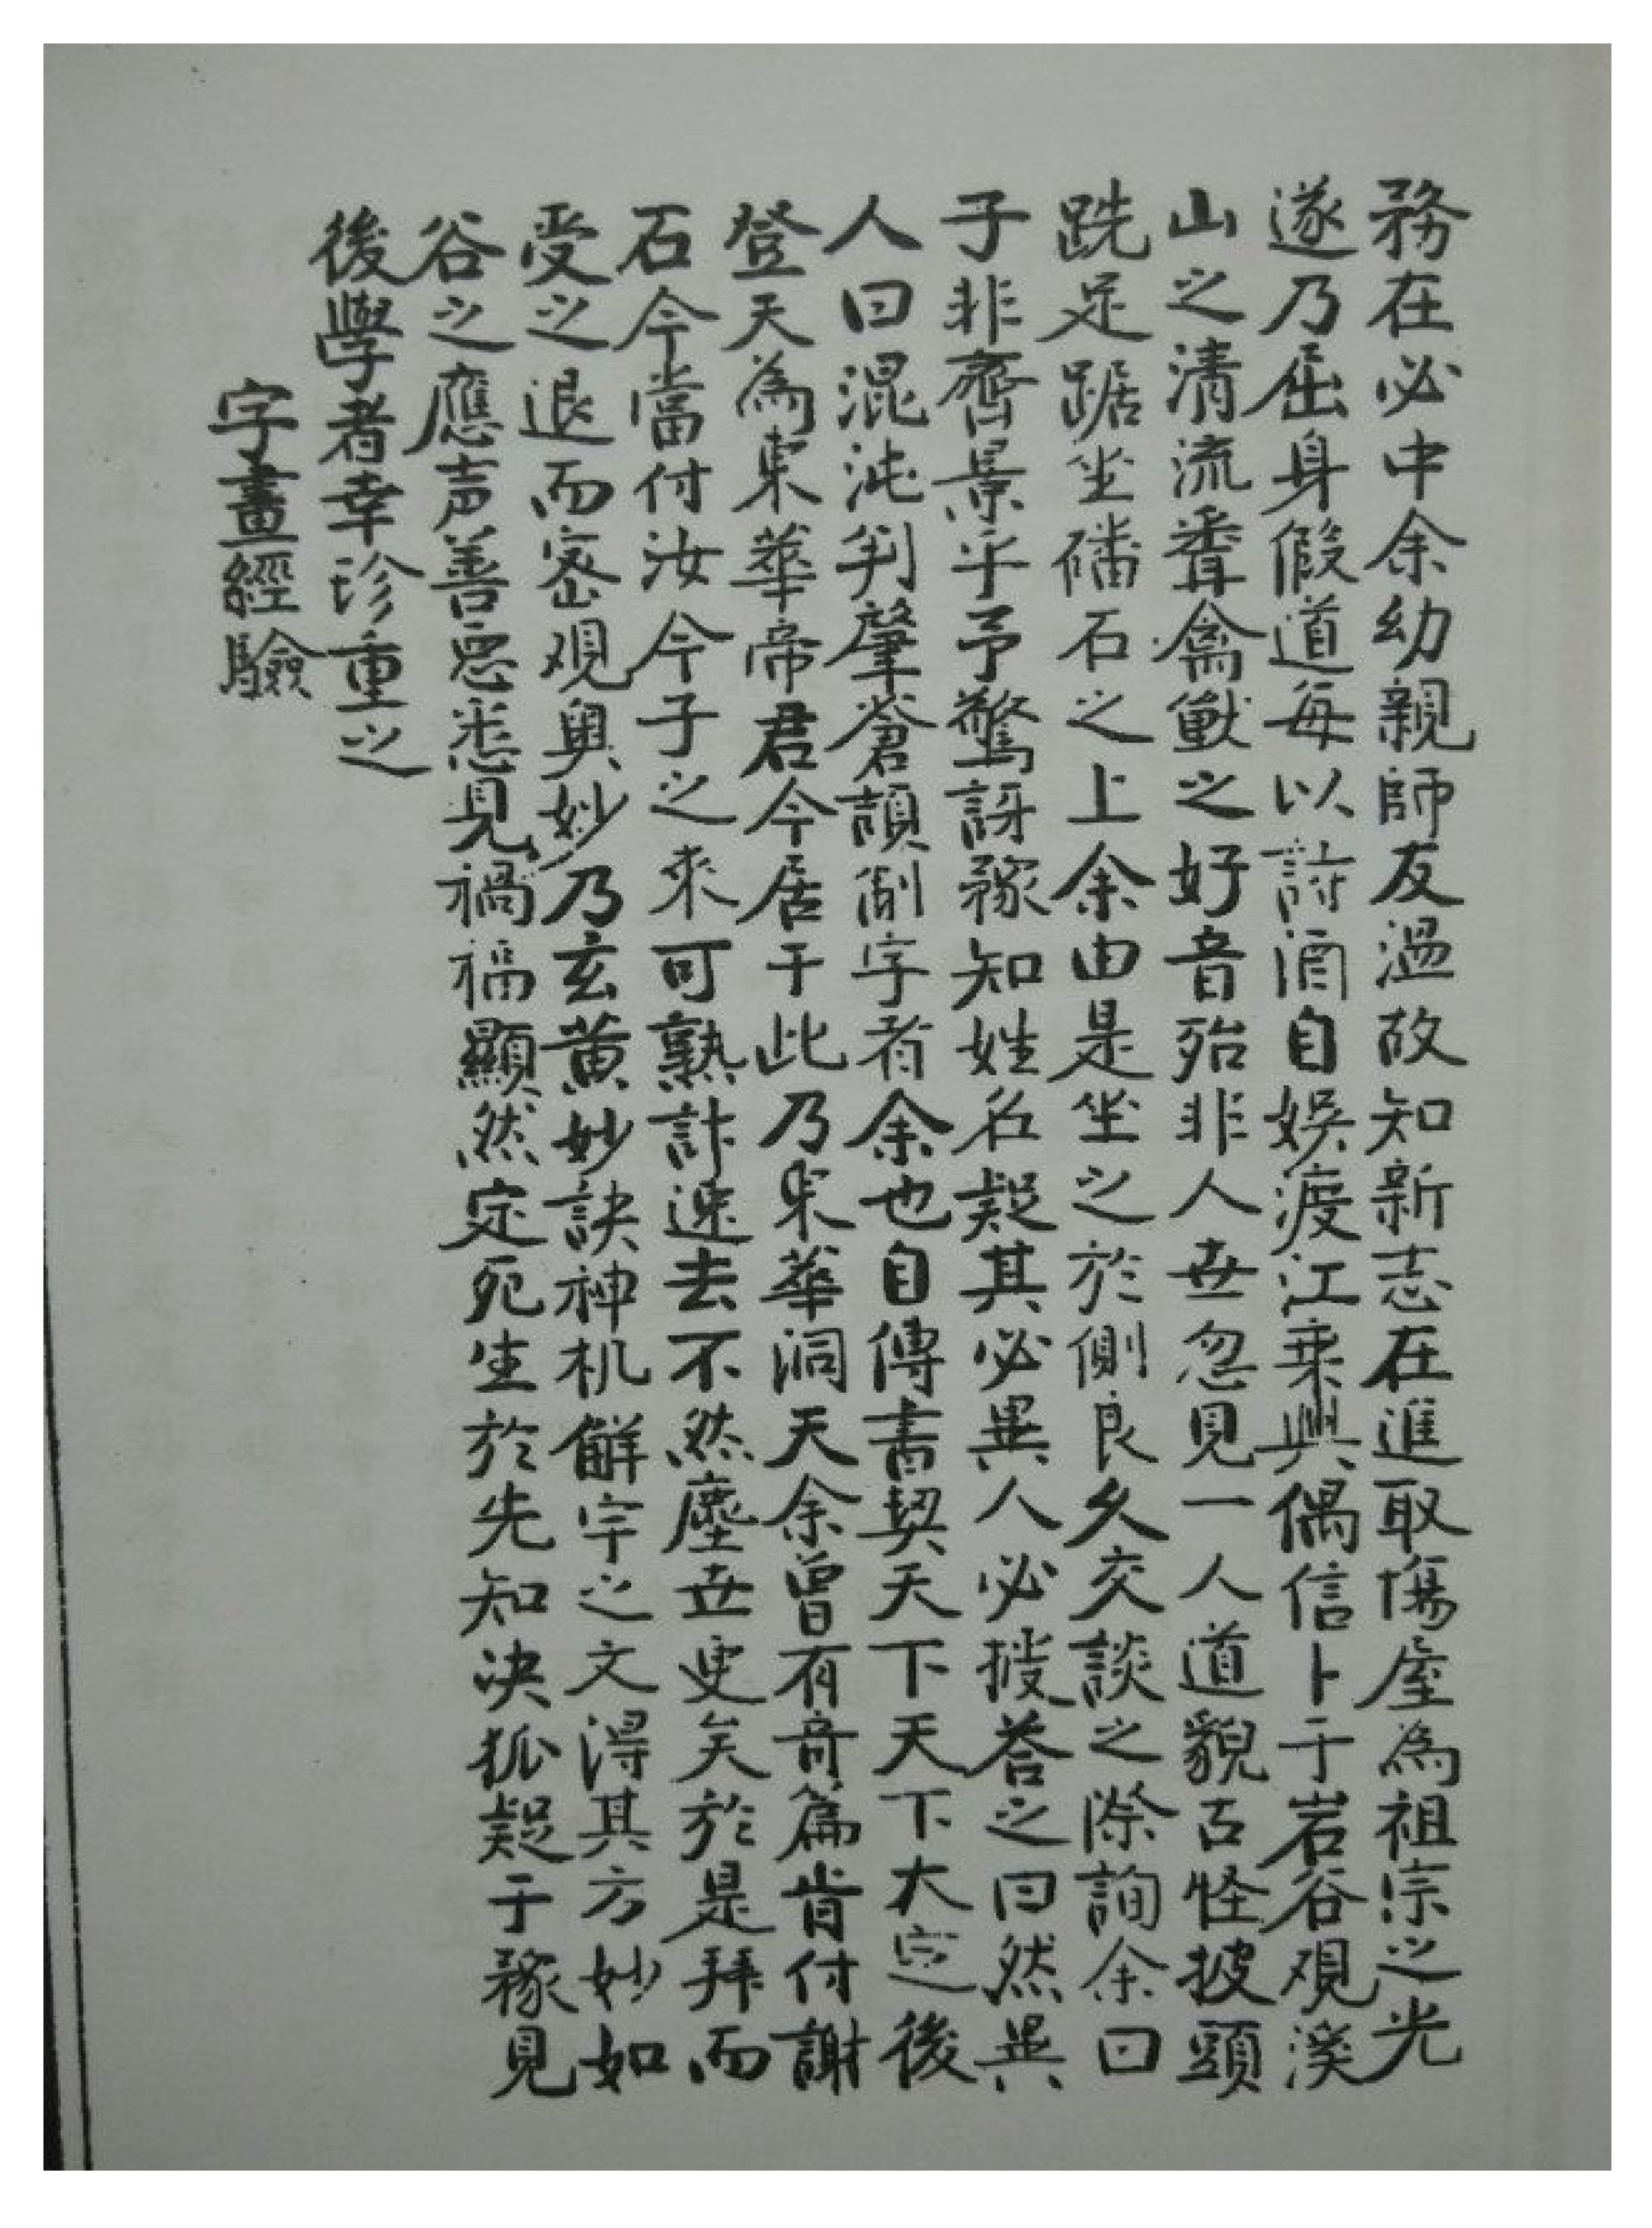 務在必中余幼親師友溫故知新志在進取傷屋為祖宗之光
遂乃屈身假道每以詩酒自娛渡江乘興偶信卜于岩谷观溪
山之清流聋禽獸之好音殆非人世忽見一人道貌古怪披頭
跣足踞坐磻石之上余由是坐之於側良久交談之際詢余曰
子非齊景乎予驚訝稼知姓名疑其必異人必披荅之曰然異
人曰混沌判肇蒼頡制字者余也自傳書契天下天下大定後
登天為東華帝君今居于此乃東華洞天余曾有奇篇肯付謝
石今當付汝今子之來可熟計速去不然塵世更矣於是拜而
受之退而密观奥妙乃玄黄妙訣神机解字之文得其方妙如
谷之應声善惡悉見禍福顯然定死生於先知决狐疑于稼見
後學者幸珍重之
字畫經驗